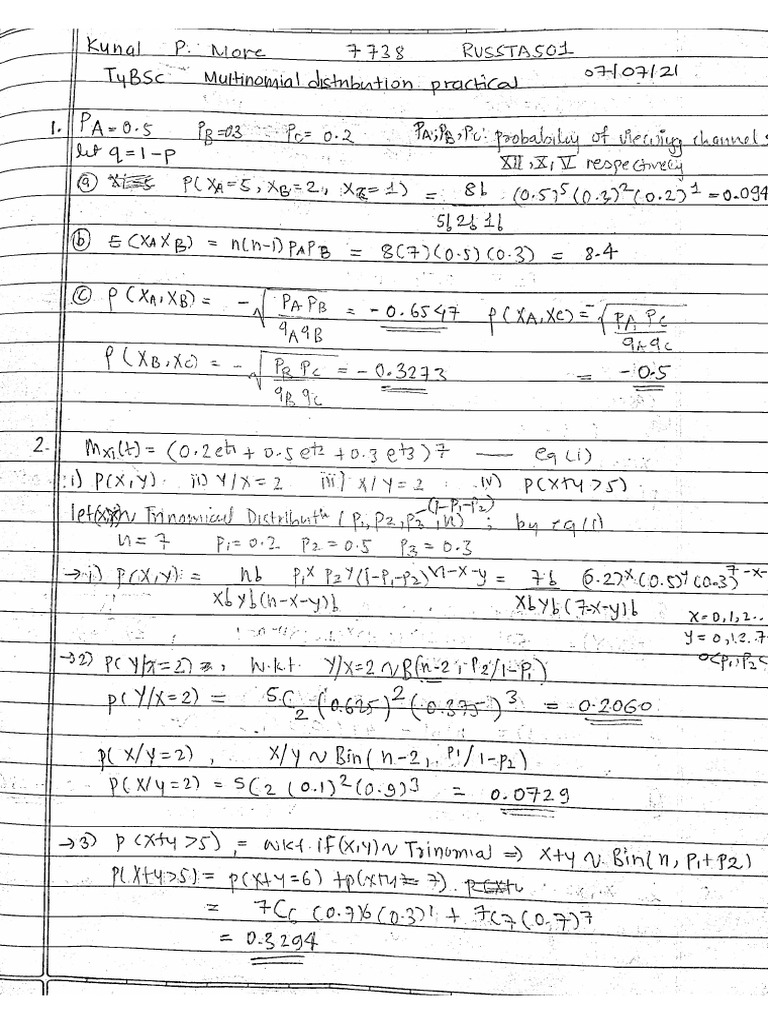 Kunal P. More 7738 RUSSTA501
TyBSc Multinomial distribution practical 07/07/21
1. PA=0.5 PB=0.3 PC=0.2 PA,PB,PC: probability of viewing channels
let q=1-p XII, X, V respectively
(a) P(XA=5, XB=2, XC=1) = 8! (0.5)^5 (0.3)^2 (0.2)^1 = 0.094
5! 2! 1!
(b) E(XAXB) = n(n-1)PAPB = 8(7)(0.5)(0.3) = 8.4
(c) ρ(XA,XB) = -√(PAPB / qAqB) = -0.6547 ρ(XA,XC) = -√(PAPC / qAqC)
ρ(XB,XC) = -√(PBPC / qBqC) = -0.3273 = -0.5
2. Mxi(t) = (0.2et1 + 0.5et2 + 0.3et3)7 — eq(i)
i) P(X,Y) ii) Y/X=2 iii) X/Y=2 iv) P(X+Y>5)
let(x,y)~ Trinomial Distributn (P1, P2, P3 -(1-P1-P2), n) ; by eq(i)
n=7 P1=0.2 P2=0.5 P3=0.3
→i) P(X,Y) = n! P1^x P2^y (1-P1-P2)^n-x-y = 7! (0.2)^x (0.5)^y (0.3)^7-x-
x! y! (n-x-y)! x! y! (7-x-y)! x=0,1,2..
y=0,1,2..7
0<P1,P2<
→2) P(Y/x=2) =, w.k.t. Y/X=2 ~B(n-2, P2/1-P1)
P(Y/X=2) = 5C2 (0.625)^2 (0.375)^3 = 0.2060
P(X/Y=2), X/Y ~ Bin(n-2, P1/1-P2)
P(X/Y=2) = 5C2 (0.1)^2 (0.9)^3 = 0.0729
→3) P(X+Y>5), = w.k.t. if(X,Y)~ Trinomial ⇒ X+Y ~ Bin(n, P1+P2)
P(X+Y>5) = P(X+Y=6) + P(X+Y=7).
= 7C6 (0.7)6 (0.3)1 + 7C7 (0.7)7
= 0.3294